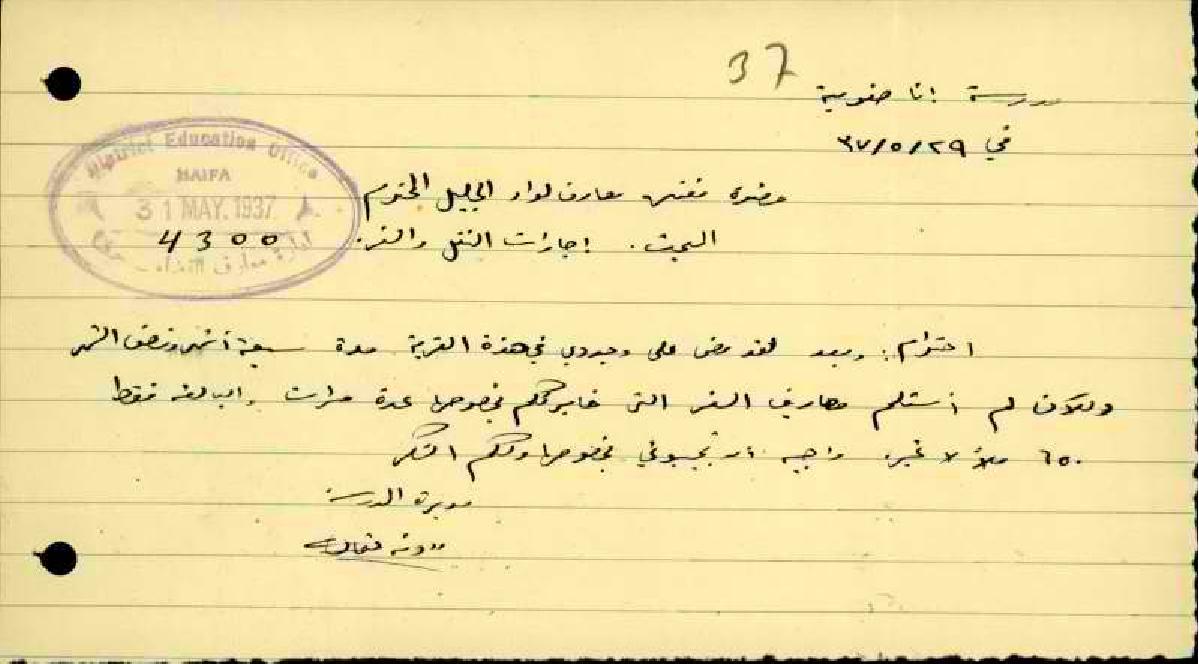 37
مدرسة اناث صفورية
في ٢٩/٥/٣٧
District Education Office
HAIFA
31 MAY. 1937
4300
ادارة معارف
حضرة مفتش معارف لواء الجليل المحترم
المبحث. اجازات النقل والسفر.
احترام: وبعد لقد مضى على وجودي في هذة القرية مدة سبعة أشهر ونصف الشهر
وللآن لم أستلم مصاريف السفر التي خابرتكم بخصوصها عدة مرات والبالغة فقط
٦٥٠ ملاً لا غير. راجية ان تجيبوني بخصوصها ولكم الشكر
مديرة المدرسة